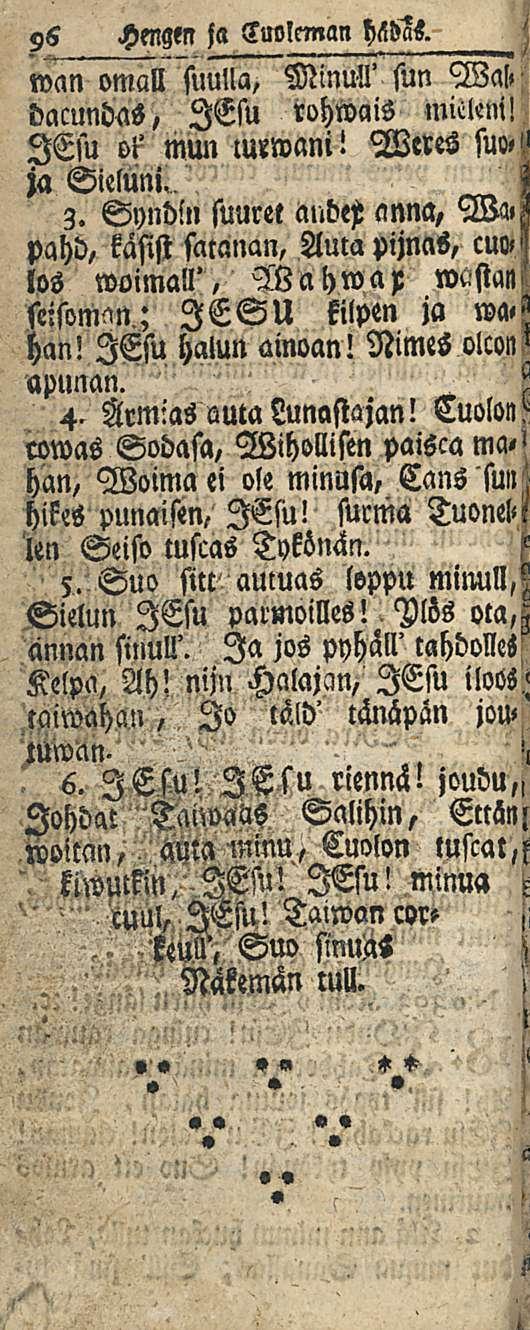 96 Hengen ja Cuoleman hädäs.
wan omall suulla, Minull' sun Wal-
dacundas, JEsu rohwais mieleni!
JEsu ol' mun turwani! Weres suo-
ja Sieluni.
3. Syndin suuret andex anna, Wa-
pahd, käsist satanan, Auta pijnas, cuo-
los woimall', Wahwax wastan
seisoman; JESU kilpen ja wa-
han! JEsu halun ainoan! Nimes olcon
apunan.
4. Armias auta Lunastajan! Cuolon
cowas Sodasa, Wihollisen paisca ma-
han, Woima ei ole minusa, Cans sun
hikes punaisen, JEsu! surma Tuonel-
len Seiso tuscas Tykönän.
5. Suo sitt' autuas loppu minull,
Sielun JEsu parmoilles! Ylös ota,
annan sinull'. Ja jos pyhäll' tahdolles
Kelpa, Ah! nijn Halajan, JEsu iloos
taiwahan, Jo täld' tänäpän jou-
tuwan.
6. JEsu! JEsu riennä! joudu,
Johdat Taiwaas Salihin, Ettän
woitan, auta minu, Cuolon tuscat,
kiwutkin, JEsu! JEsu! minua
cuul, JEsu! Taiwan cor-
keull', Suo sinuas
Näkemän tull.